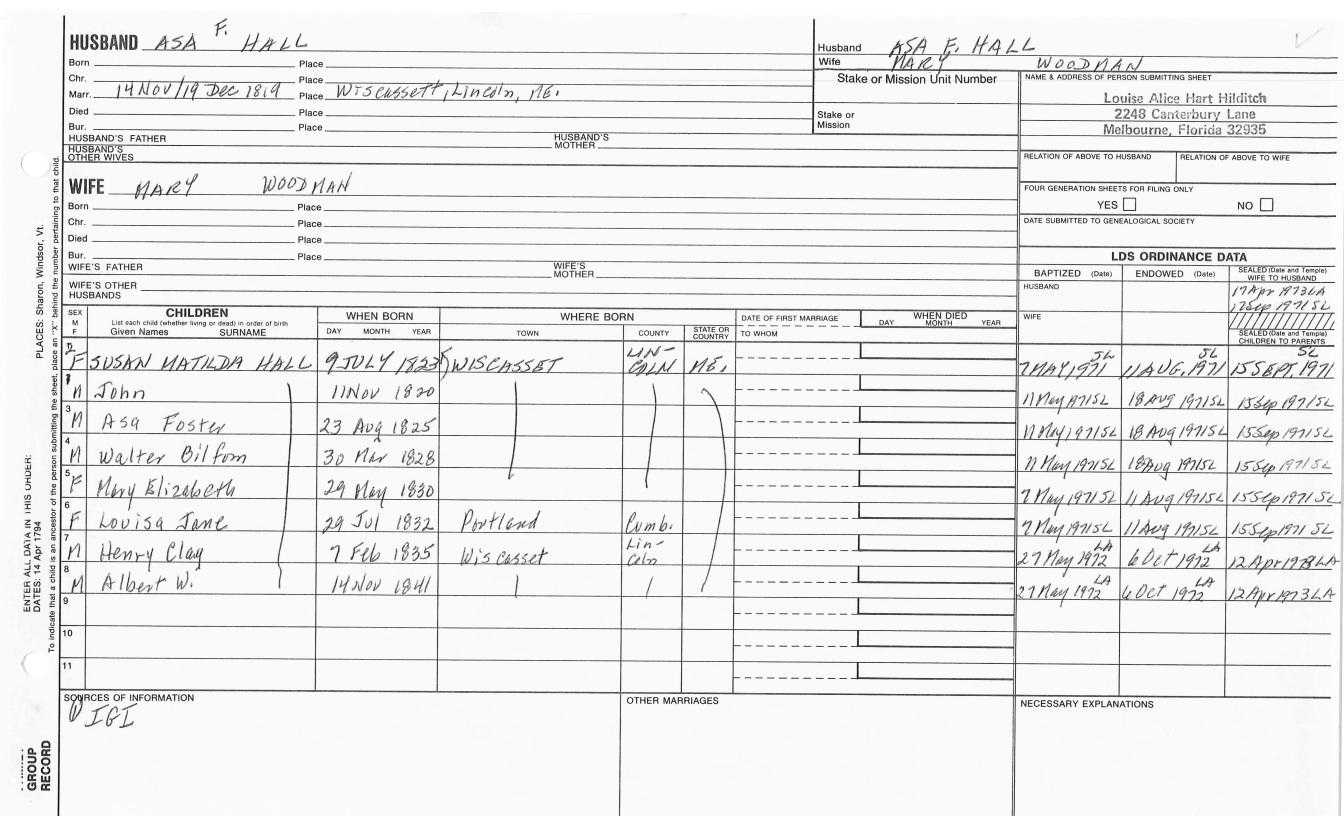 HUSBAND ASA F. HALL
Born Place
Chr. Place
Marr. 14 Nov/19 Dec 1819 Place Wiscassett, Lincoln, ME.
Died Place
Bur. Place
HUSBAND'S FATHER HUSBAND'S MOTHER
HUSBAND'S OTHER WIVES
Husband ASA F. HALL
Wife MARY WOODMAN
Stake or Mission Unit Number
Stake or Mission
NAME & ADDRESS OF PERSON SUBMITTING SHEET
Louise Alice Hart Hilditch
2248 Canterbury Lane
Melbourne, Florida 32935
RELATION OF ABOVE TO HUSBAND RELATION OF ABOVE TO WIFE
FOUR GENERATION SHEETS FOR FILING ONLY
YES NO
DATE SUBMITTED TO GENEALOGICAL SOCIETY
WIFE MARY WOODMAN
Born Place
Chr. Place
Died Place
Bur. Place
WIFE'S FATHER WIFE'S MOTHER
WIFE'S OTHER HUSBANDS
LDS ORDINANCE DATA
BAPTIZED (Date) ENDOWED (Date) SEALED (Date and Temple) WIFE TO HUSBAND
HUSBAND 17 Apr 1973 LA
17 Sep 1971 SL
WIFE
SEALED (Date and Temple) CHILDREN TO PARENTS
SEX M F CHILDREN WHEN BORN WHERE BORN DATE OF FIRST MARRIAGE WHEN DIED
List each child (whether living or dead) in order of birth
Given Names SURNAME DAY MONTH YEAR TOWN COUNTY STATE OR COUNTRY TO WHOM DAY MONTH YEAR
2 F SUSAN MATILDA HALL 9 JULY 1823 WISCASSET LIN-COLN ME. 7 MAY, 1971 SL 11 AUG, 1971 SL 15 SEPT, 1971 SL
1 M John 11 Nov 1820 11 May 1971 SL 18 Aug 1971 SL 15 Sep 1971 SL
3 M Asa Foster 23 Aug 1825 11 May 1971 SL 18 Aug 1971 SL 15 Sep 1971 SL
4 M Walter Bilfom 30 Mar 1828 11 May 1971 SL 18 Aug 1971 SL 15 Sep 1971 SL
5 F Mary Elizabeth 29 May 1830 7 May 1971 SL 11 Aug 1971 SL 15 Sep 1971 SL
6 F Louisa Jane 29 Jul 1832 Portland Cumb. 7 May 1971 SL 11 Aug 1971 SL 15 Sep 1971 SL
7 M Henry Clay 7 Feb 1835 Wiscasset Lin-coln 27 May 1972 LA 6 Oct 1972 LA 12 Apr 1973 LA
8 M Albert W. 14 Nov 1841 27 May 1972 LA 6 Oct 1972 LA 12 Apr 1973 LA
9
10
11
SOURCES OF INFORMATION OTHER MARRIAGES NECESSARY EXPLANATIONS
IGI
ENTER ALL DATA IN THIS ORDER:
DATES: 14 Apr 1794 PLACES: Sharon, Windsor, Vt.
To indicate that a child is an ancestor of the person submitting the sheet, place an "X" behind the number pertaining to that child.
GROUP
RECORD